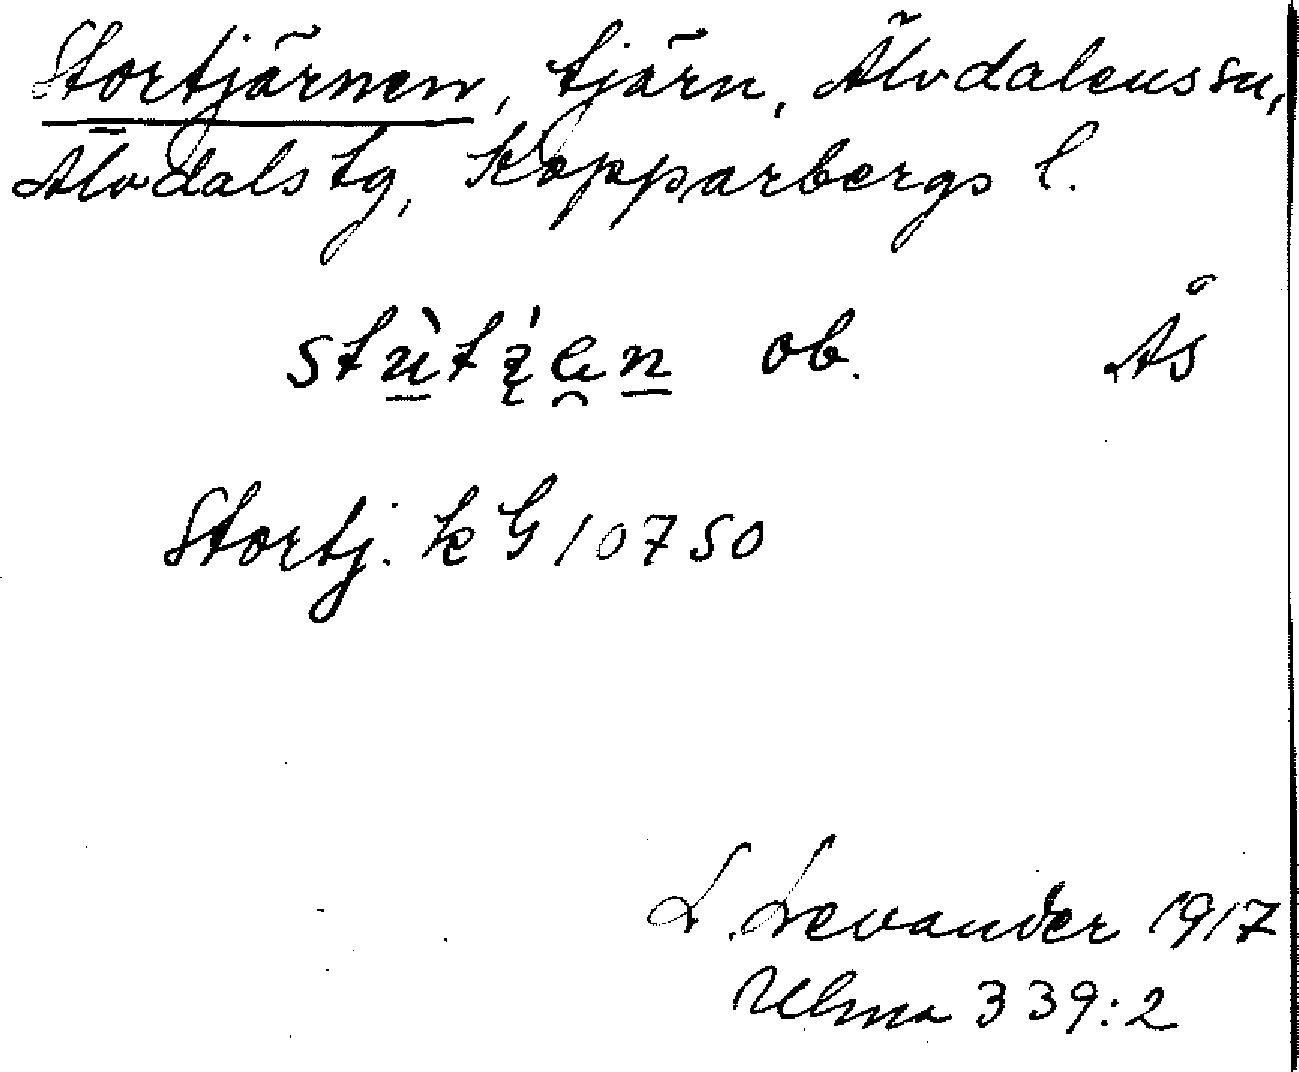 Stortjärnen, tjärn, Älvdalens sn,
Älvdals tg, Kopparbergs l.
ob. Ås
Stortj. kG 10750
L. Levander 1917
Ulma 339:2